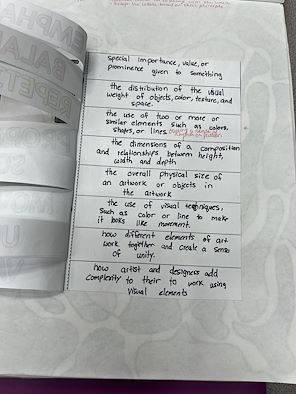 special importance, value, or
prominence given to something
the distribution of the visual
weight of objects, color, texture, and
space.
the use of two or more or
similar elements such as colors,
shapes, or lines.
the dimensions of a composition
and relationships between height,
width and depth
the overall physical size of
an artwork or objects in
the artwork
the use of visual techniques,
such as color or line to make
it looks like movement.
how different elements of art
work together and create a sense
of unity.
how artist and designess add
complexity to their to work using
visual elements
EMPHA
BALA